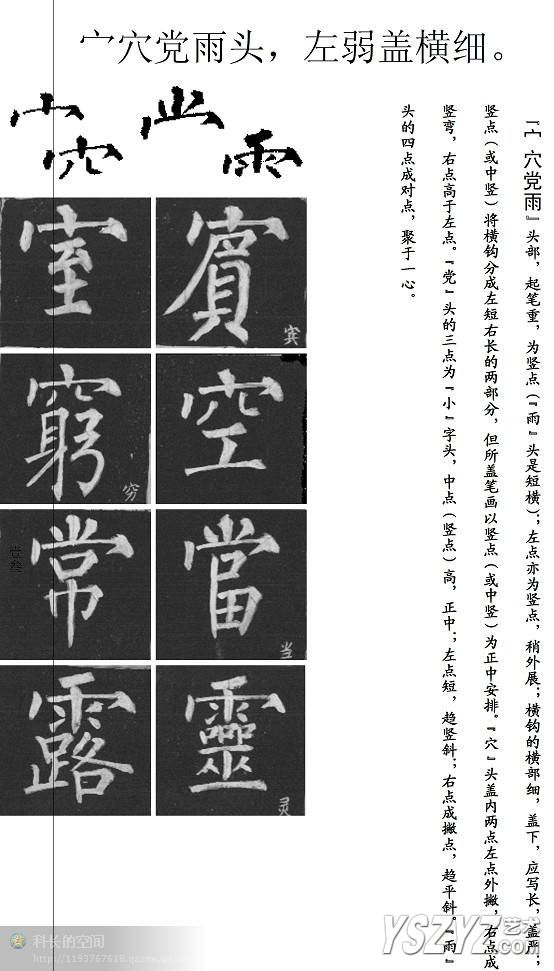 宀穴党雨头，左弱盖横细。
『宀穴党雨』头部，起笔重，为竖点（『雨』头是短横）；左点亦为竖点，稍外展；横钩的横部细，盖下，应写长，盖严；
竖点（或中竖）将横钩分成左短右长的两部分，但所盖笔画以竖点（或中竖）为正中安排。『穴』头盖内两点左点外撇，右点成
竖弯，右点高于左点。『党』头的三点为『小』字头，中点（竖点）高，正中；左点短，趋竖斜；右点成撇点，趋平斜。『雨』
头的四点成对点，聚于一心。
室 賓 宾
窮 穷 空
常 當 当
露 靈 灵
壹叁
科长的空间
YSZYZ艺术
.com